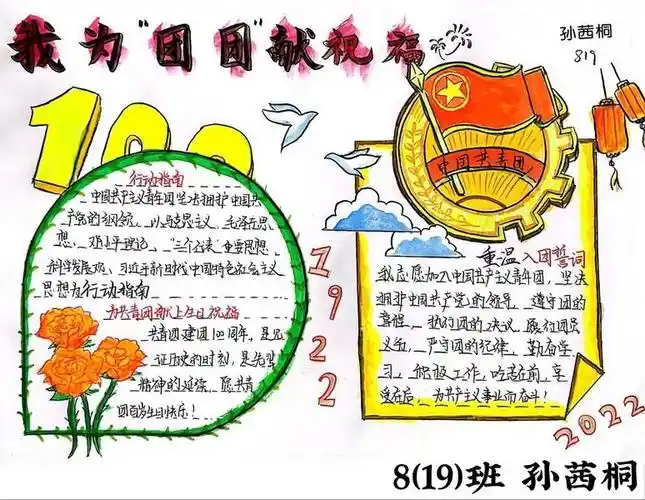 我为"团团"献祝福
孙茜桐
819
100
中国共青团
行动指南
中国共产主义青年团坚决拥护中国共
产党的纲领,以马克思主义、毛泽东思
想、邓小平理论、"三个代表"重要思想、
科学发展观、习近平新时代中国特色社会主义
思想为行动指南
为共青团献上生日祝福
共青团建团100周年,是见
证历史的时刻,是先辈
精神的延续,愿共青
团百岁生日快乐!
1922
重温入团誓词
我志愿加入中国共产主义青年团,坚决
拥护中国共产党的领导,遵守团的
章程,执行团的决议,履行团员
义务,严守团的纪律,勤奋学
习,积极工作,吃苦在前,享
受在后,为共产主义事业而奋斗!
2022
8(19)班 孙茜桐